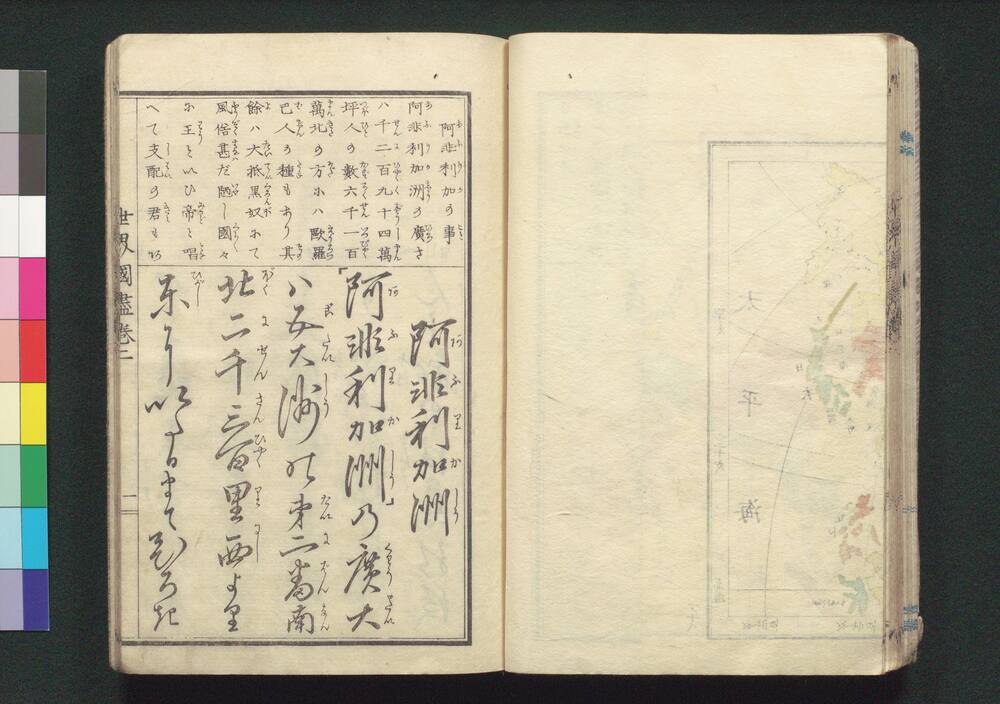 阿非利加の事
阿非利加洲の廣さ
八千二百九十四萬
坪人の數六千一百
萬北の方にハ歐羅
巴人の種もあり其
餘ハ大抵黒奴にて
風俗甚だ陋し國々
に王といひ帝と唱
へて支配の君もあ
阿非利加洲
「阿非利加洲」乃廣大
ハ五大洲の第二番南
北二千三百里西より
東にいたるまでひろき
世界國盡卷二
一
太平海